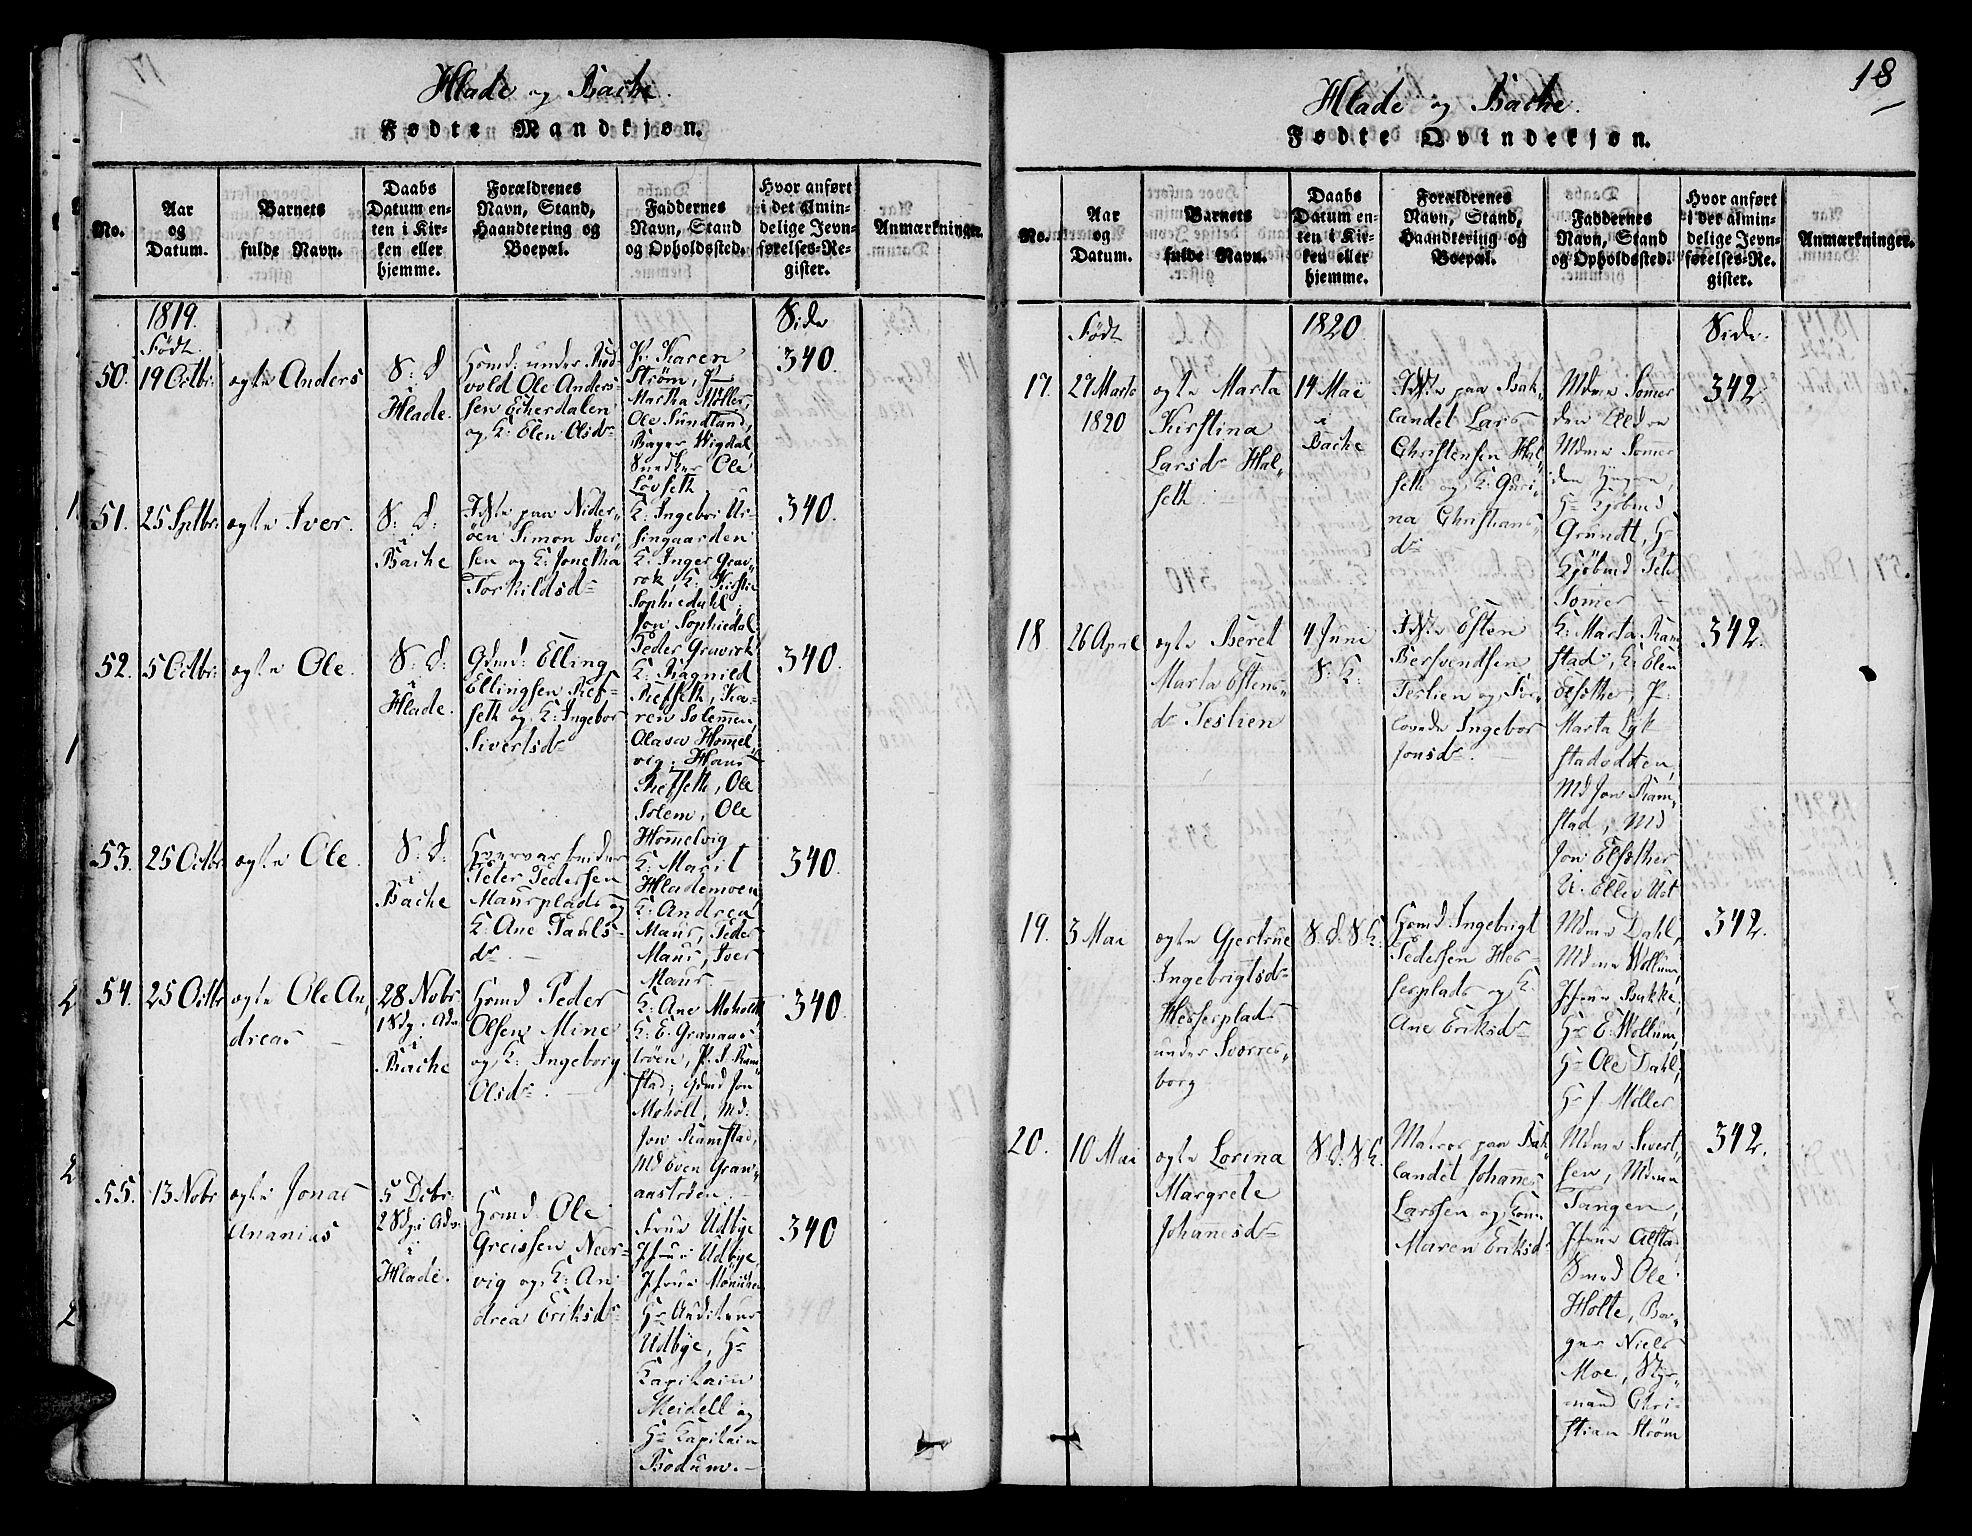 Hlade og Bache.
Fødte Mandkjøn.
No.
Aar
og
Datum.
Barnets
fulde Navn.
Daabs
Datum en-
ten i Kir-
ken eller
hjemme.
Forældrenes
Navn, Stand,
Haandtering og
Boepæl.
Faddernes
Navn, Stand
og Opholdssted.
Hvor anført
i det Almin-
delige Jevn-
førelses-Re-
gister.
Anmærkninger.
1819.
Født.
Side
50.
19 Octbr:
ægte Anders
S: d
Hlade.
Huusmd: under Rod-
vold Ole Anders-
sen Eckerdalen
og K: Elen Olsdr
P: Karen
Strøm, P:
Martha Møller,
Ole Sundland,
Bager Wigdal,
Snedker Ole
Løvseth
340
51.
25 Sptbr:
ægte Iver.
S: d:
i
Bache
Inste paa Nider-
öen Simon Iver-
sen og K: Jonetha
Torkildsdr
K: Ingebor
singaarden
K: Inger Grav-
rok, K: Kirstie
Sophiedahl
Jon Sophiedal
Peder Gravrok
340.
52.
5 Octbr:
ægte Ole.
S: d:
i
Hlade.
Gdmd: Elling
Ellingsen Ref-
seth og K: Ingebor
Sivertsdr
K: Ragnild
Refseth, Ka-
ren Solemen,
Olava Hommel-
vig, Hans
Refseth, Ole
Solem, Ole
Hommelvig
340.
53.
25 Octbr
ægte Ole
S: d:
i
Bache
Peter Pedersen
Maurplads og
K: Ane Pauls-
dr
K: Marit
Hlademoen,
K: Andrea
Maur, Peder
Maur, Iver
Maur
340.
54.
25 Octbr
ægte Ole An-
dreas
28 Nobr
1 Sdg. i Adv.
i
Bache
Huusmd Peder
Olsen Mine
og K: Ingeborg
Olsdr
K: Ane Moholt
K: E. Granaas-
trøen, P. S. Ram-
stad, Gdmd Jon
Moholt, Md:
Jon Ramstad,
Md Even Gran-
aastrøen
340.
55.
13 Nobr
ægte Jonas
Ananias
5 Debr:
2 Sdg. i Adv.
i
Hlade.
Huusmd Ole
Greissen Neer-
vig og K: An-
drea Eriksdr
Frue Udbye
Jfrue Udbye,
Jfrue
Hr Auditeur
Udbye, Hr
Kapitain
Meidell og
Hr Kapitain
Bodum.
340
Hlade og Bache.
18
Fødte Qvindekjøn.
No.
Aar
og
Datum.
Barnets
fulde Navn.
Daabs
Datum en-
ten i Kir-
ken eller
hjemme.
Forældrenes
Navn, Stand,
Haandtering og
Boepæl.
Faddernes
Navn, Stand
og Opholdssted.
Hvor anført
i det almin-
delige Jevn-
førelses-Re-
gister.
Anmærkninger.
Født
1820
Side.
17.
27 Marts
1820
ægte Marta
Kirstina
Larsdr Hal-
seth
14 Mai
i
Bache
Inste paa Bak-
landet Lars
Christensen Hal-
seth og K: Guri-
na Christians-
dr
Mdme Somer
den Ældre
Mdme Somer
den Yngre,
Hr Kjøbmd
Grundt, Hr
Kjøbmd Pet.
Somer
342
18
26 April
ægte Beret
Marta Estens-
dr Teslien
4 Juni
S: K:
Inste Esten
Bersvendsen
Teslien og Tro-
lovede Ingebor
Jonsdr.
K: Marta Ram-
stad, K: Elen
Elsether, P:
Marta Lyk-
stadodden,
Md Jon Ram-
stad, Md
Jon Elsether
U. Ellev Ust
342.
19.
3 Mai
ægte Gjertrue
Ingebrigtsdr
Hesserplads
under Sværres-
borg
S. d. S. K.
Huusmd Ingebrigt
Pedersen Hes-
serplads og K.
Ane Eriksdr
Mdme Dahl,
Mdme Wollum,
Jfrue Bakke,
Hr E. Wollum,
Hr Ole Dahl,
Hr J. Møller
342.
20.
10 Mai
ægte Lorina
Margrete
Johannesdr
S. d. S. K.
Matros paa Bak-
landet Johannes
Larssen og Kone
Maren Eriksdr
Mdme Sivert-
sen, Mdme
Tangen,
Jfrue Alsta
Smed Ole
Holte, Bø-
ger Niels
Moe, Styr-
mand Chri-
stian Strøm
342.